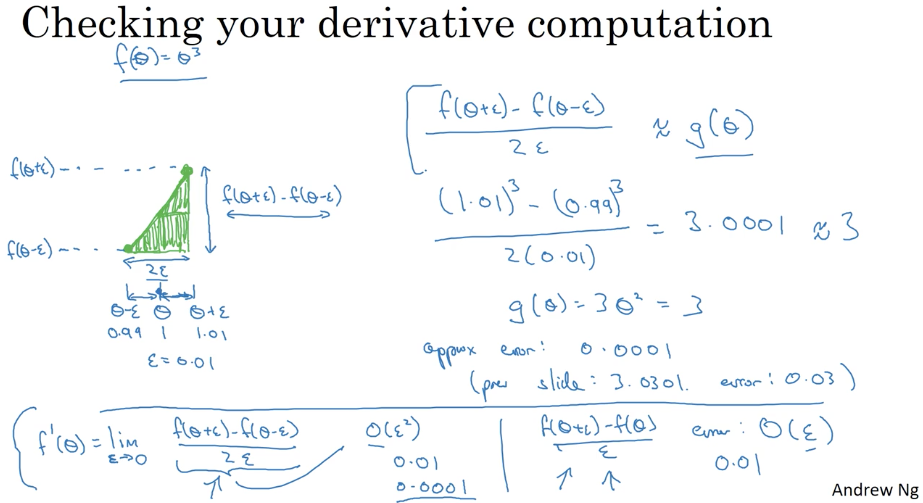 Checking your derivative computation
f(θ) = θ³
f(θ+ε) - f(θ-ε) / 2ε ≈ g(θ)
f(θ+ε)
f(θ+ε) - f(θ-ε)
f(θ-ε)
2ε
θ-ε θ θ+ε
0.99 1 1.01
ε = 0.01
(1.01)³ - (0.99)³ / 2(0.01) = 3.0001 ≈ 3
g(θ) = 3θ² = 3
approx error: 0.0001
(prev slide: 3.0301. error: 0.03)
f'(θ) = lim ε→0 f(θ+ε) - f(θ-ε) / 2ε O(ε²)
0.01
0.0001
f(θ+ε) - f(θ) / ε error: O(ε)
0.01
Andrew Ng